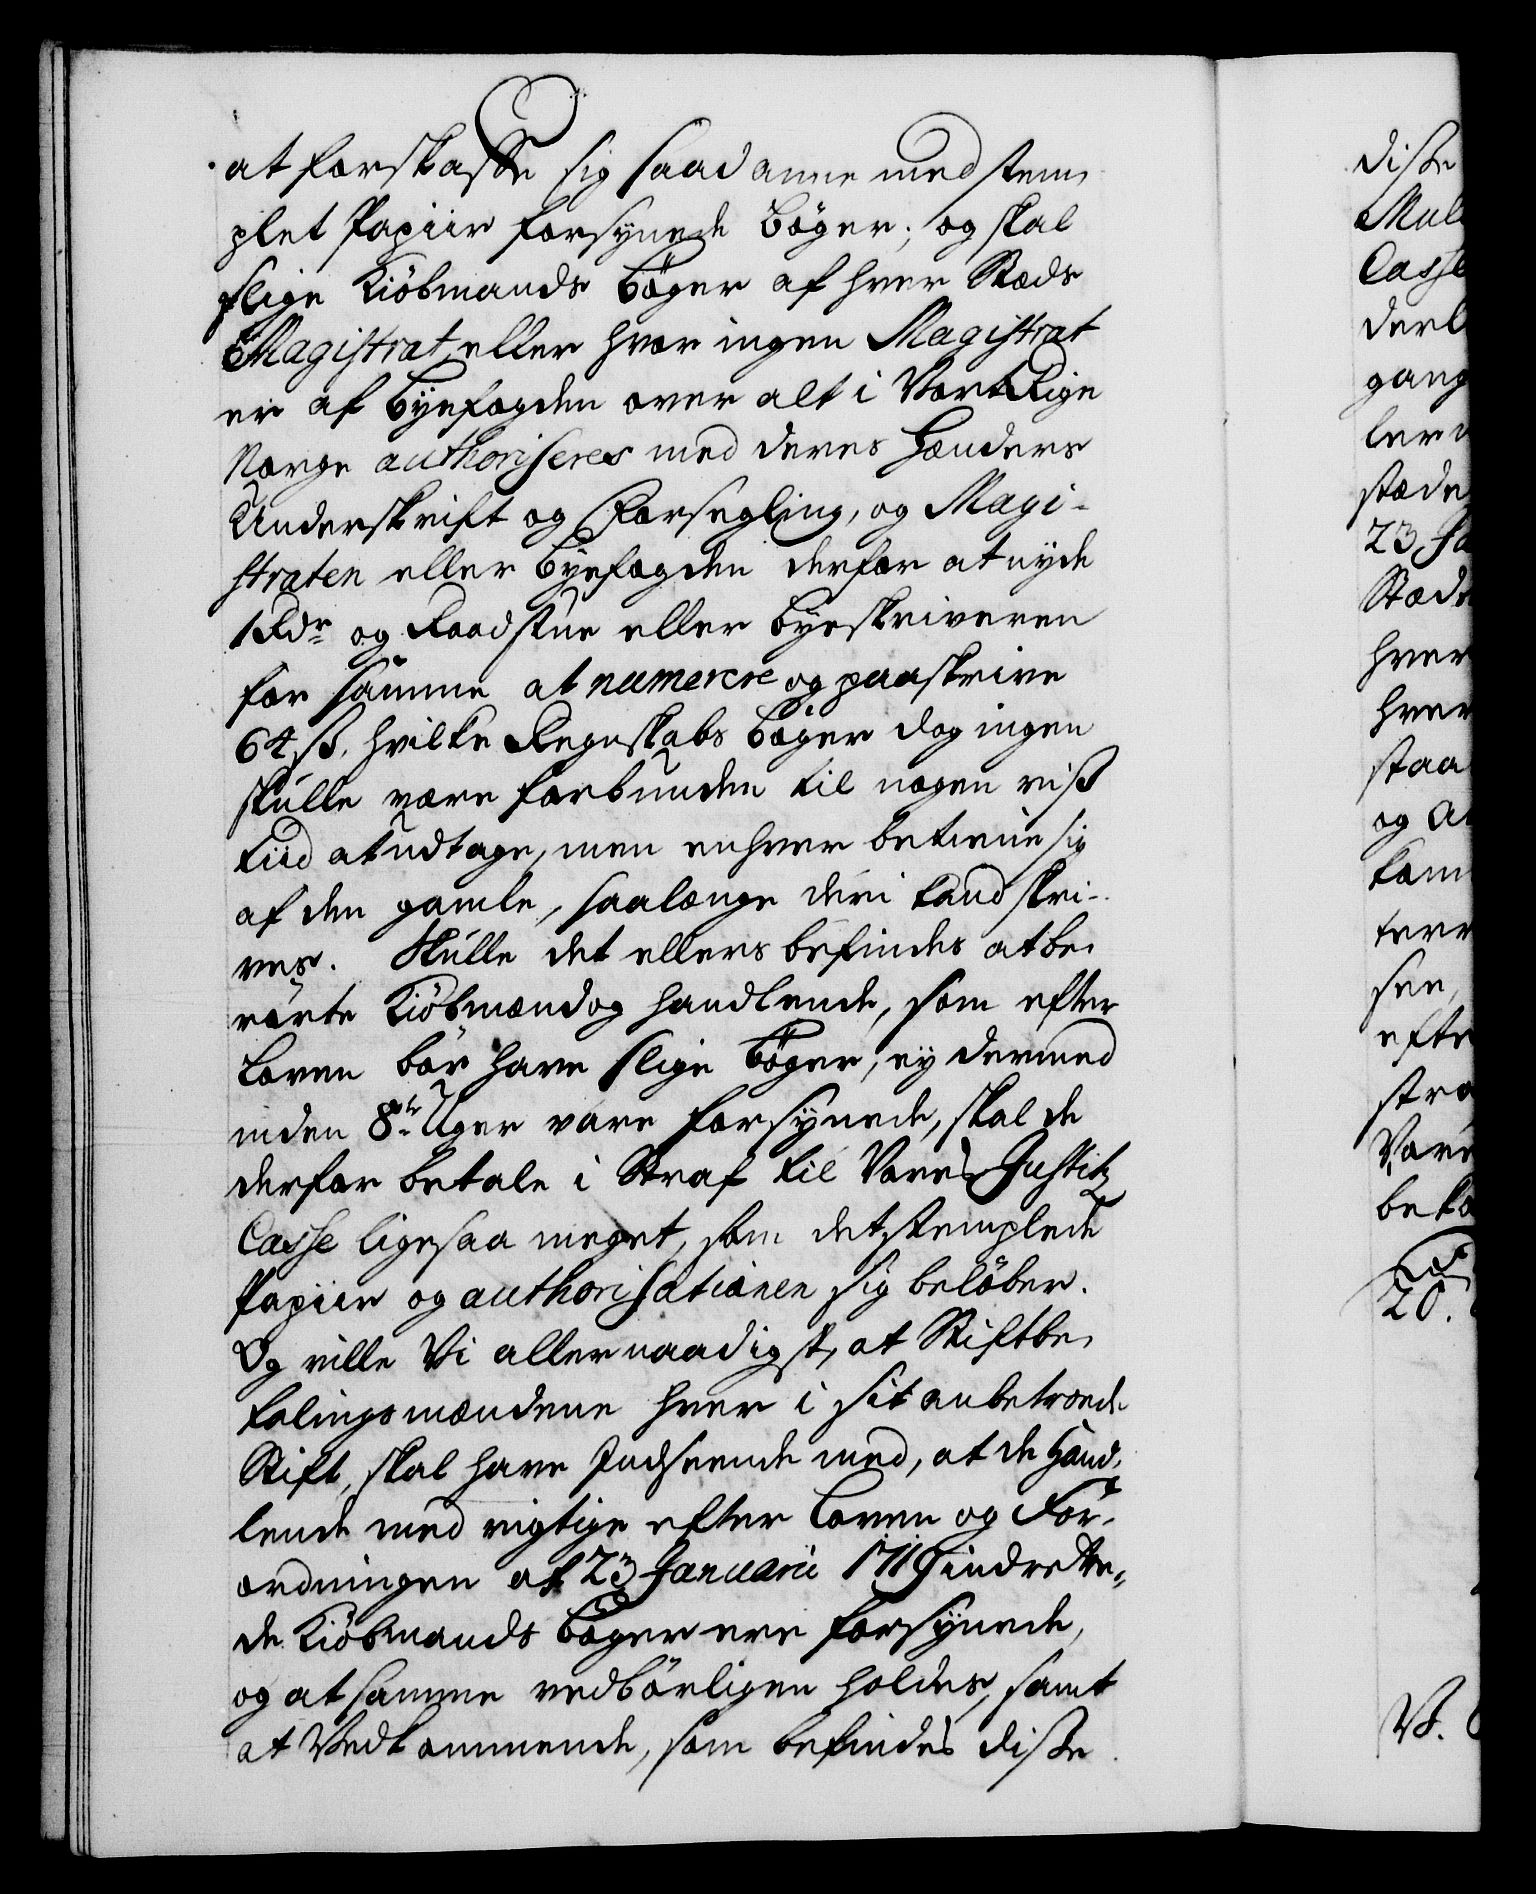 at forskaffe sig saadanne med stem¬
plet Papiir forsynede Bøger; og skal
slige Kiöbmands Bøger af hver Stæds
Magistrat, eller hvor ingen Magistrat
er af Byefogden over alt i Vort Rige
Norge authoriseres med deres Hænders
Underskrift og Forsegling, og Magi-
straten eller Byefogden derfor at nyde
1 Rdr og Raadstue eller Byeskriveren
for samme at numerere og paaskrive
64 ß. hvilke Regnskabs Bøger dog ingen
skulle være forbunden til nogen viß
Tiid at udtage, men enhver betiene sig
af den gamle, saalænge deri kand skri-
ves. Skulle det ellers befindes at be¬
rørte Kiöbmænd og handlende, som efter
Loven bör have slige Bøger, ey dermed
inden 8te Uger vare forsynede, skal de
derfor betale i Straf til Vores Justitz
Casse ligesaa meget, som det stemplede
Papiir og authorisationen sig belöber.
Og ville Vi allernaadigst, at Stiftbe¬
falingsmændene hver i sit anbetroede
Stift, skal have Indseende med, at de Hand¬
lende med rigtige efter Loven og For¬
ordningen af 23 Januarii 1719 indrette¬
de Kiöbmands Bøger ere forsynede,
og at samme vedbörligen holdes, samt
at Vedkommende, som befindes disse
disse
Casse
gang
23 Ja
Stæd
hver
hver
staa
og
efte
20.